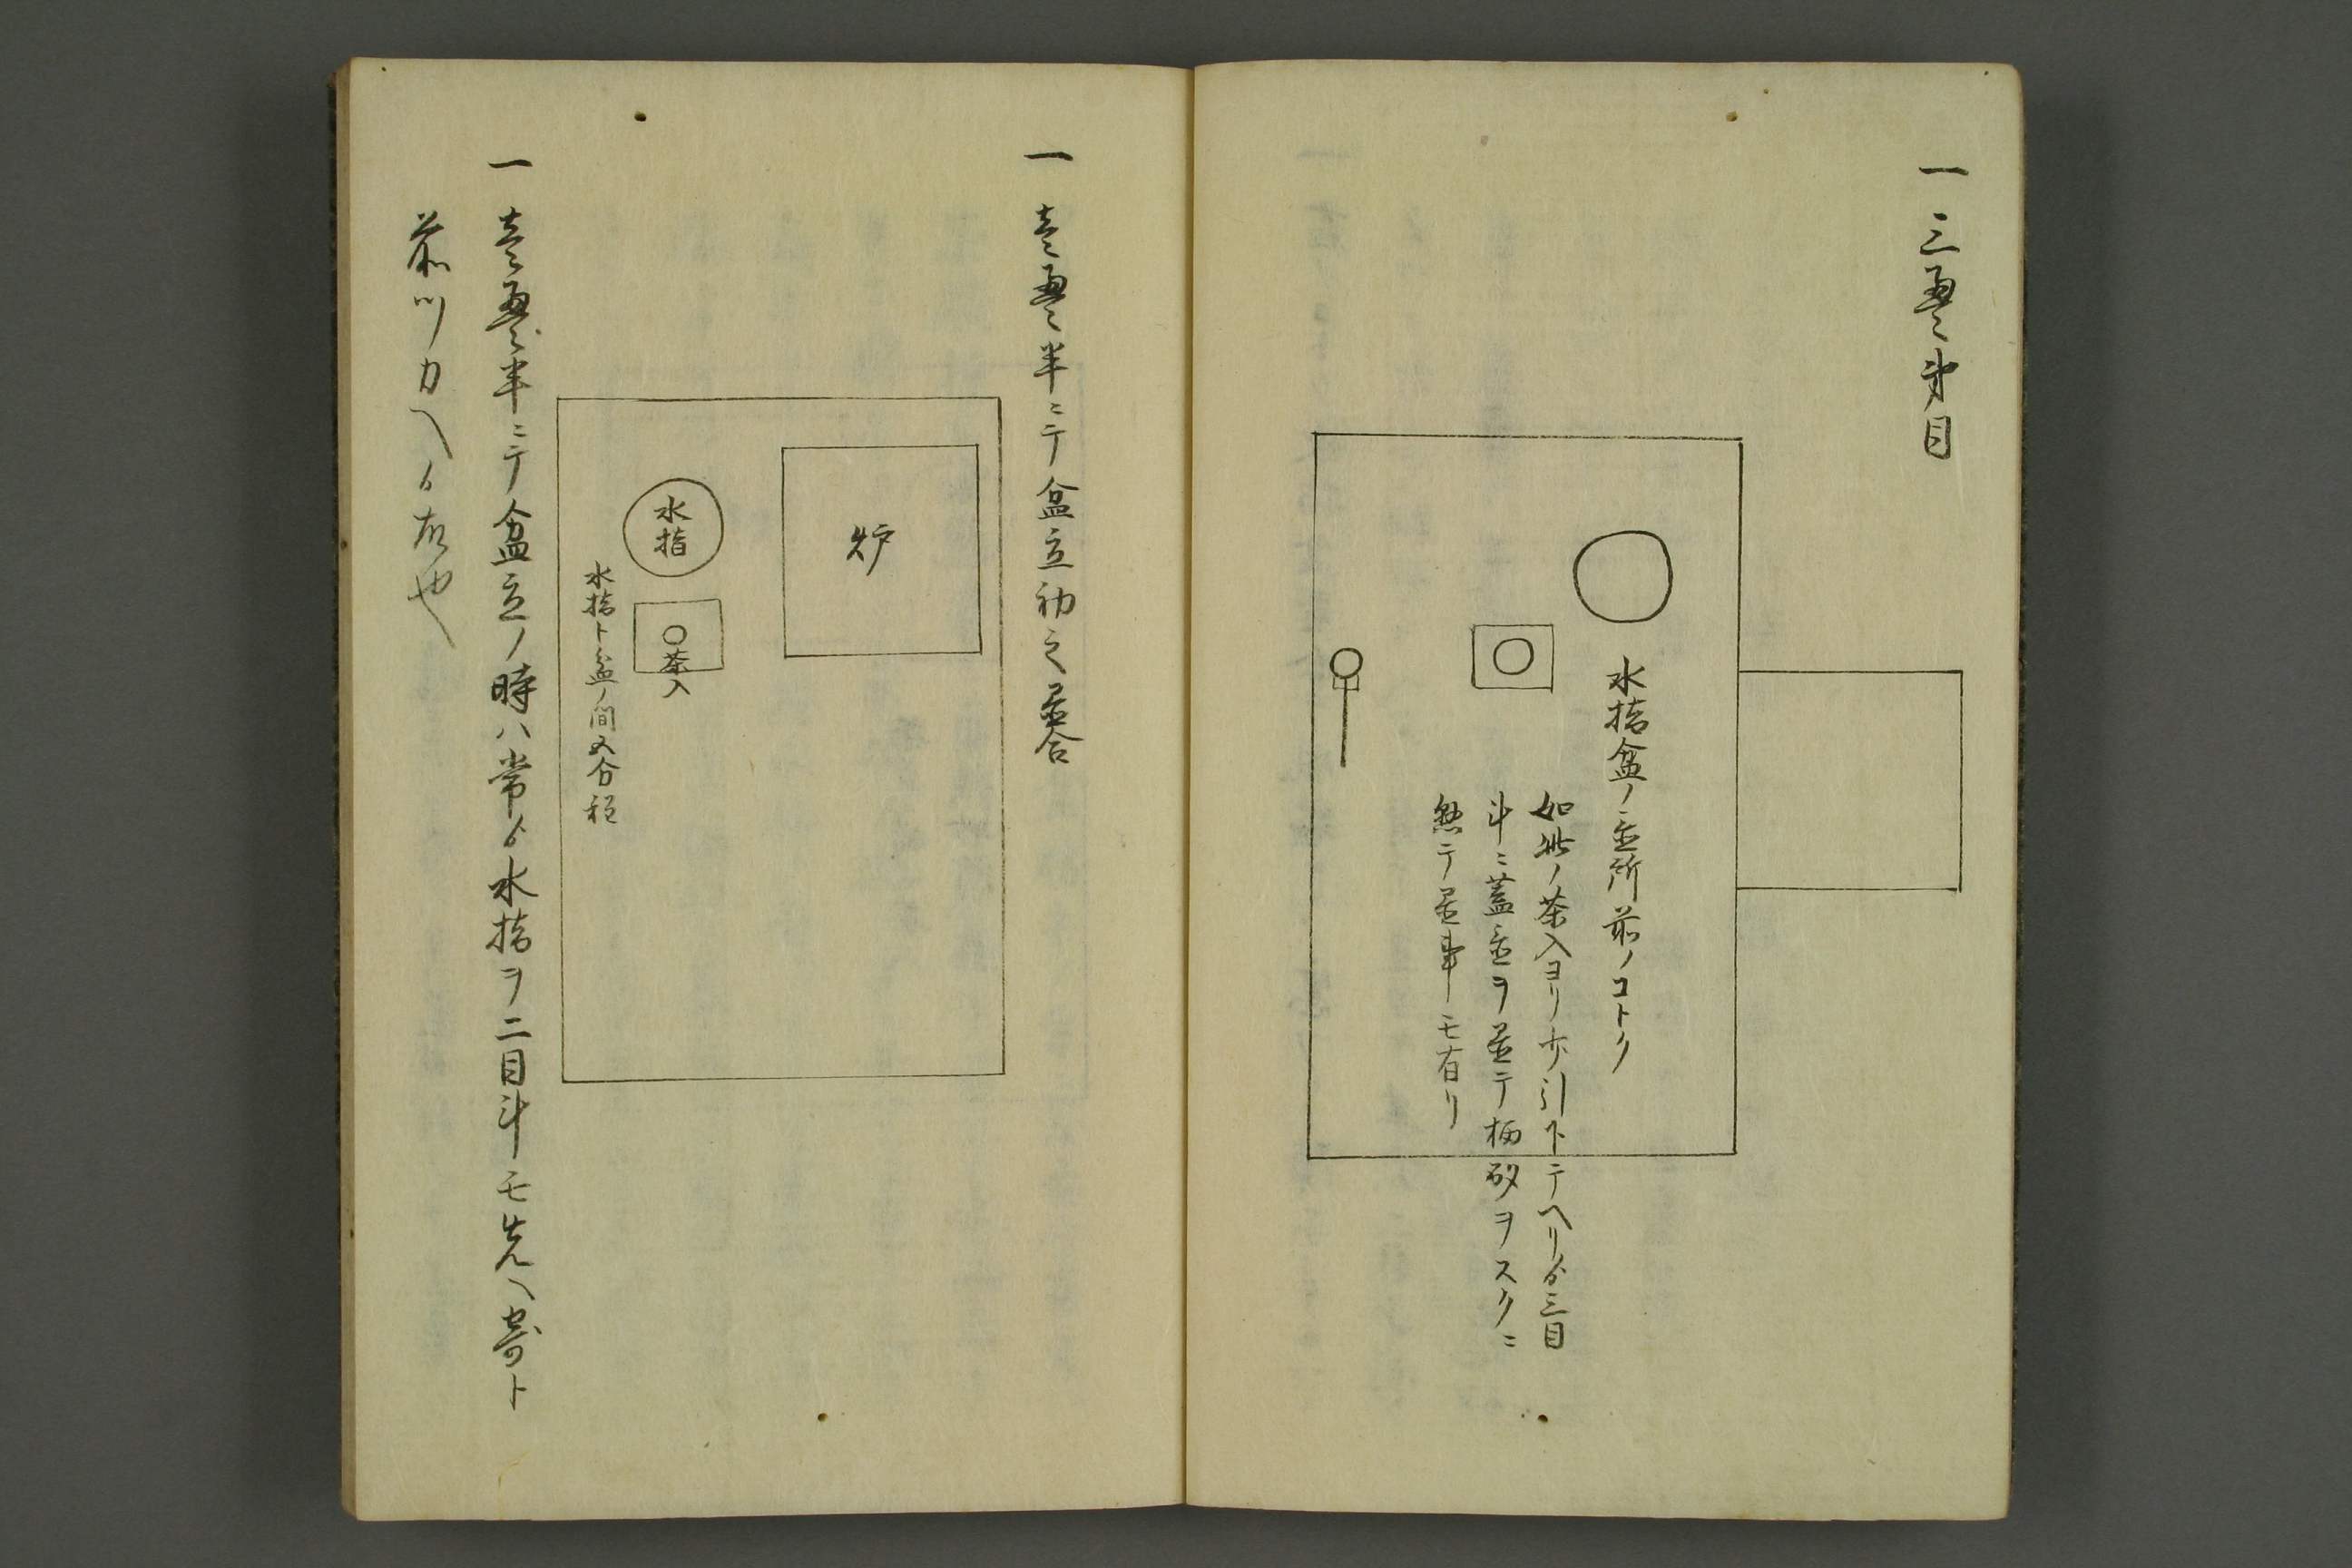 一 三畳半目
水指盆ノ置所前ノコトク
如此ノ茶入ヨリ少引下テヘリゟ三目
斗ニ蓋置ヲ置テ柄杓ヲスクニ
懸テ置事モ有リ
一 壱畳半ニテ盆立初之置合
炉
水指
○茶入
水指ト盆ノ間五分程
一 壱畳半ニテ盆立ノ時ハ常ゟ水指ヲ二目斗モ先ヘ寄ト
前ツカヘル故也